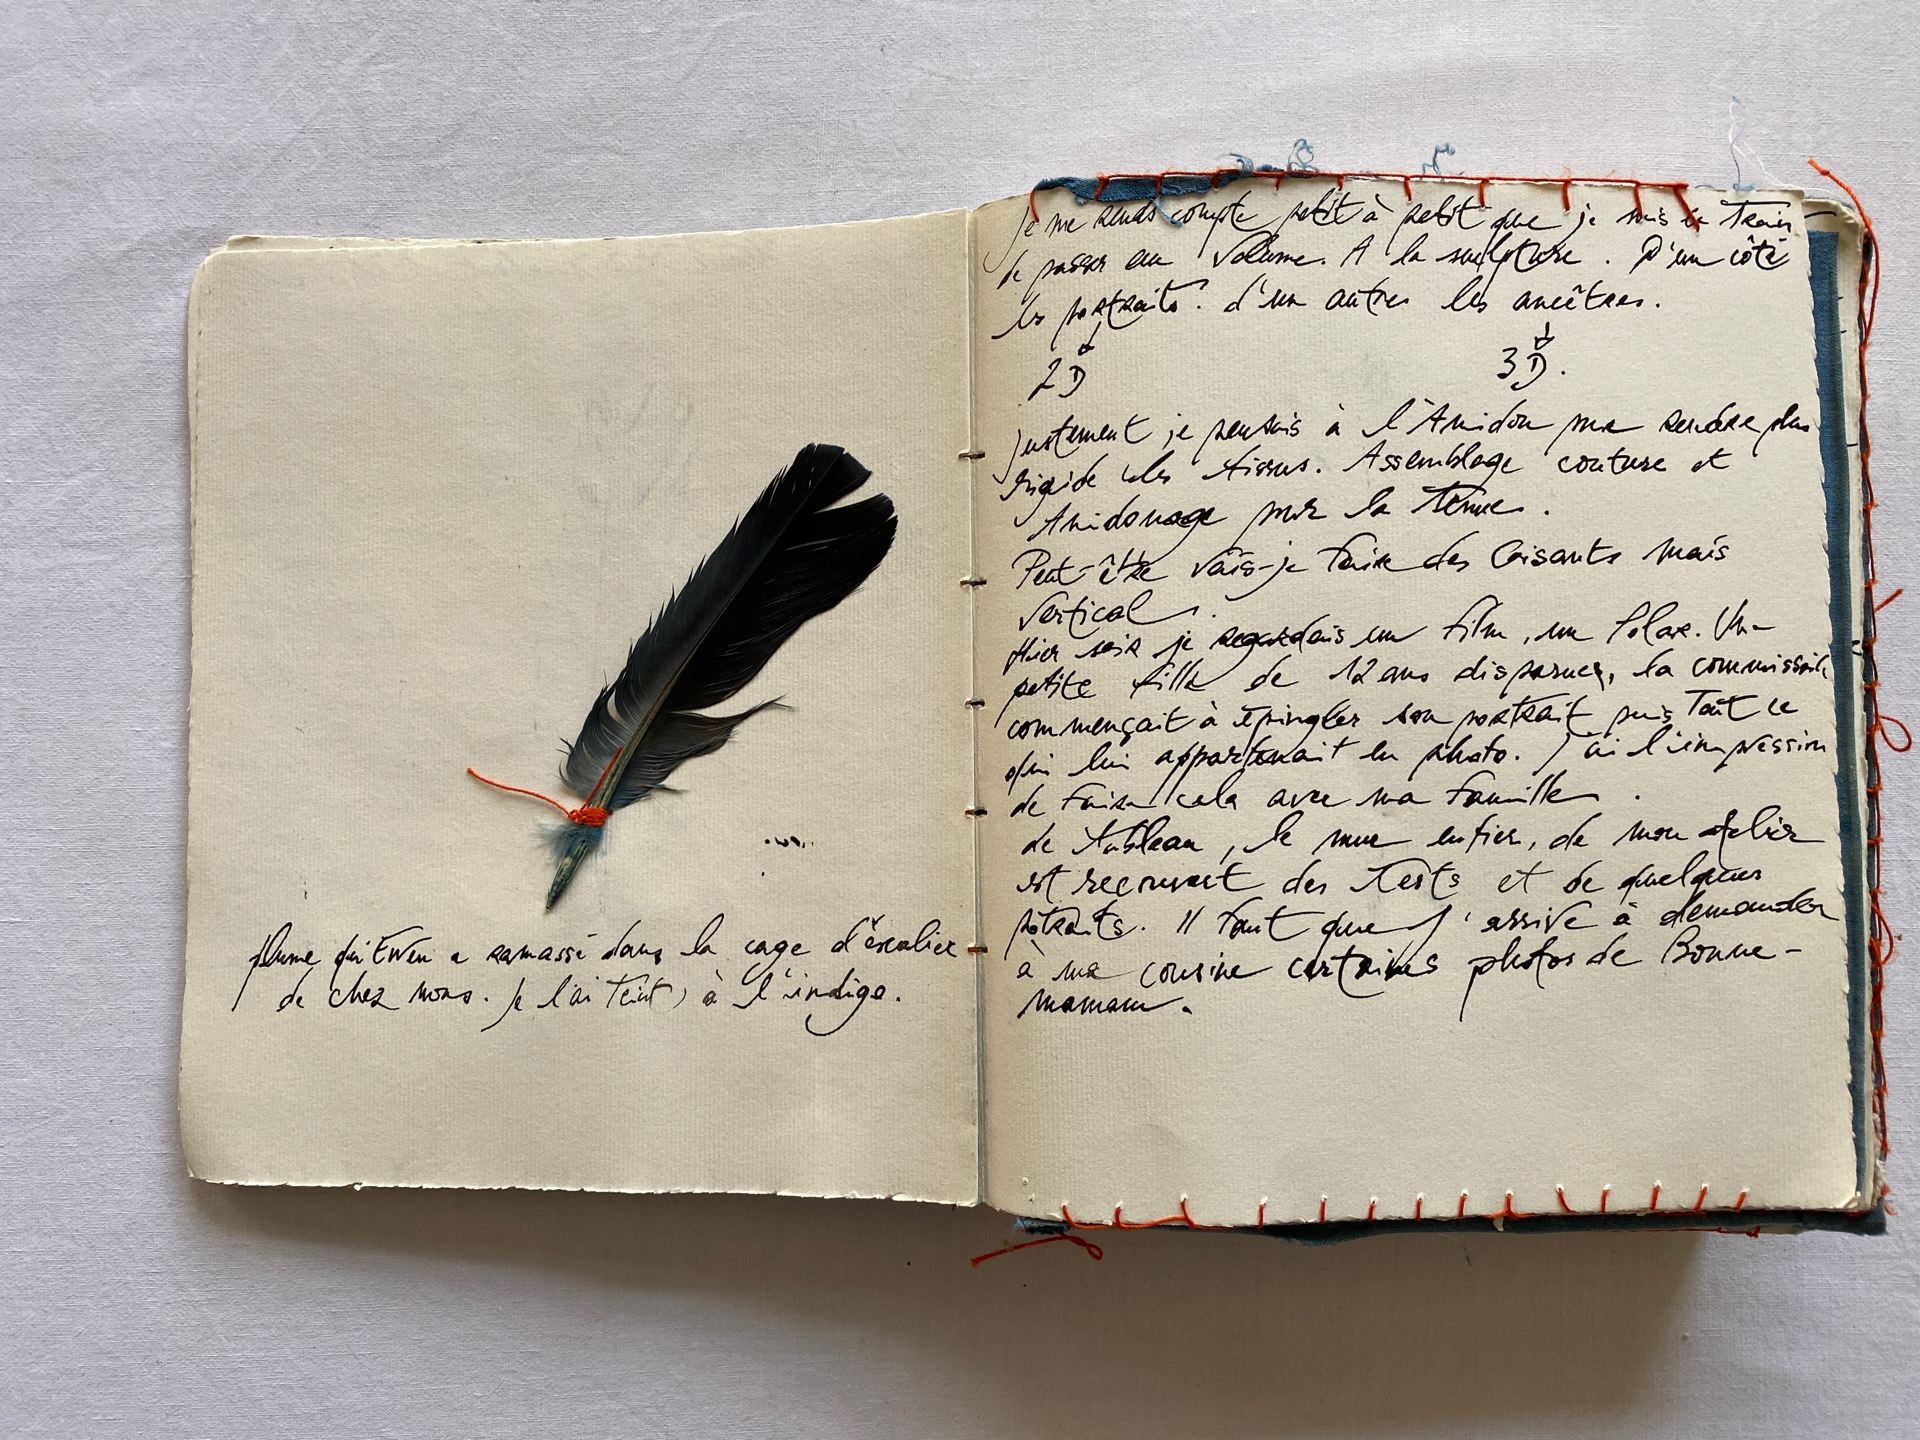 plume qu'Ewen a ramassé dans la cage d'éscalier
de chez nous. Je l'ai teint à l'indigo.
Je me rends compte petit à petit que je suis en train
de passer au Volume. A la sculpture. D'un côté
les portraits. d'un autres les ancêtres.
2D 3D.
justement je pensais à l'Amidon pour rendre plus
rigide les tissus. Assemblage couture et
Amidonage pour la tenue.
Peut-être vais-je faire des Gisants mais
Vertical.
Hier soir je regardais un film, un Polar. Une
petite fille de 12 ans disparues, la commissaire
commençait à épingler son portrait puis tout ce
qui lui appartenait en photo. J'ai l'impression
de faire cela avec ma famille.
de tableau, le mur entier, de mon atelier
est recouvert des tests et de quelques
portraits. Il faut que j'arrive à demander
à ma cousine certaines photos de Bonne-
maman.